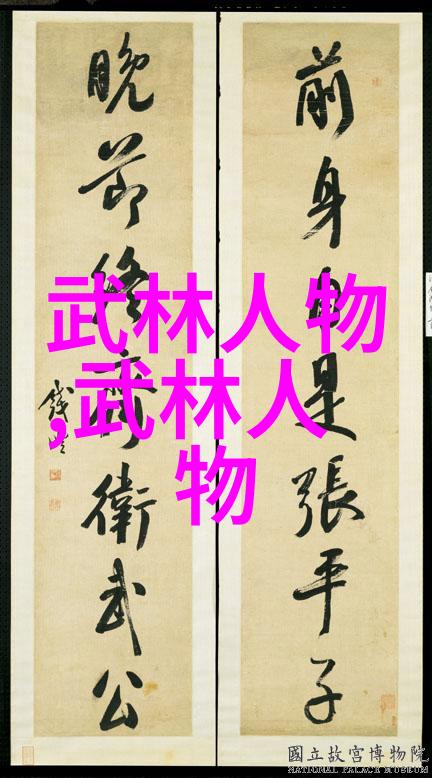 前身自是張平子
晚節終齊衛武公
武林人物
,武林人
物
國立故宮博物院
NATIONAL PALACE MUSEUM